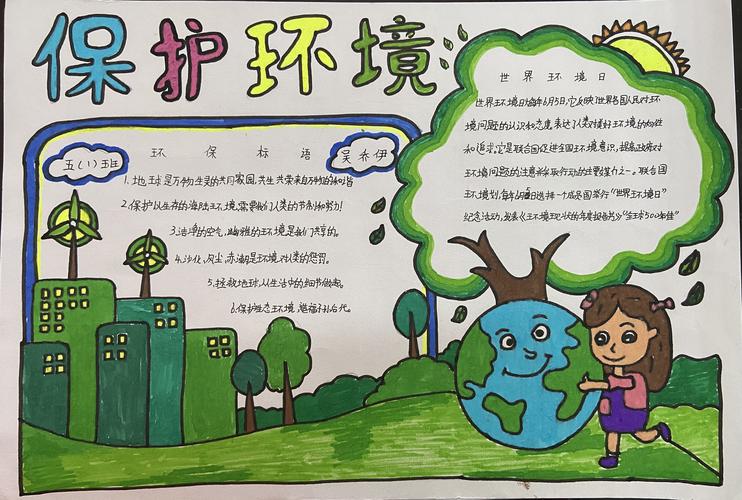 保护环境
五(1)班
环保标语
吴乔伊
1.地球是万物生灵的共同家园,共生共荣来自万物的和谐
2.保护以生存的海陆环境,需要我们人类的节制和努力!
3.洁净的空气,幽雅的环境是我们共享的。
4.沙化、风尘、赤潮是环境对人类的惩罚。
5.拯救地球,从生活中的细节做起。
6.保护生态环境,造福子孙后代。
世界环境日
世界环境日为每年6月5日,它反映了世界各国人民对环
境问题的认识和态度,表达了人类对美好环境的向往
和追求。它是联合国促进全国环境意识,提高政府对
环境问题的注意并采取行动的主要媒介之一。联合国
环境规划,每年6月5日选择一个成员国举行"世界环境日"
纪念活动,发表《环境现状的年度报告书》"全球500佳"